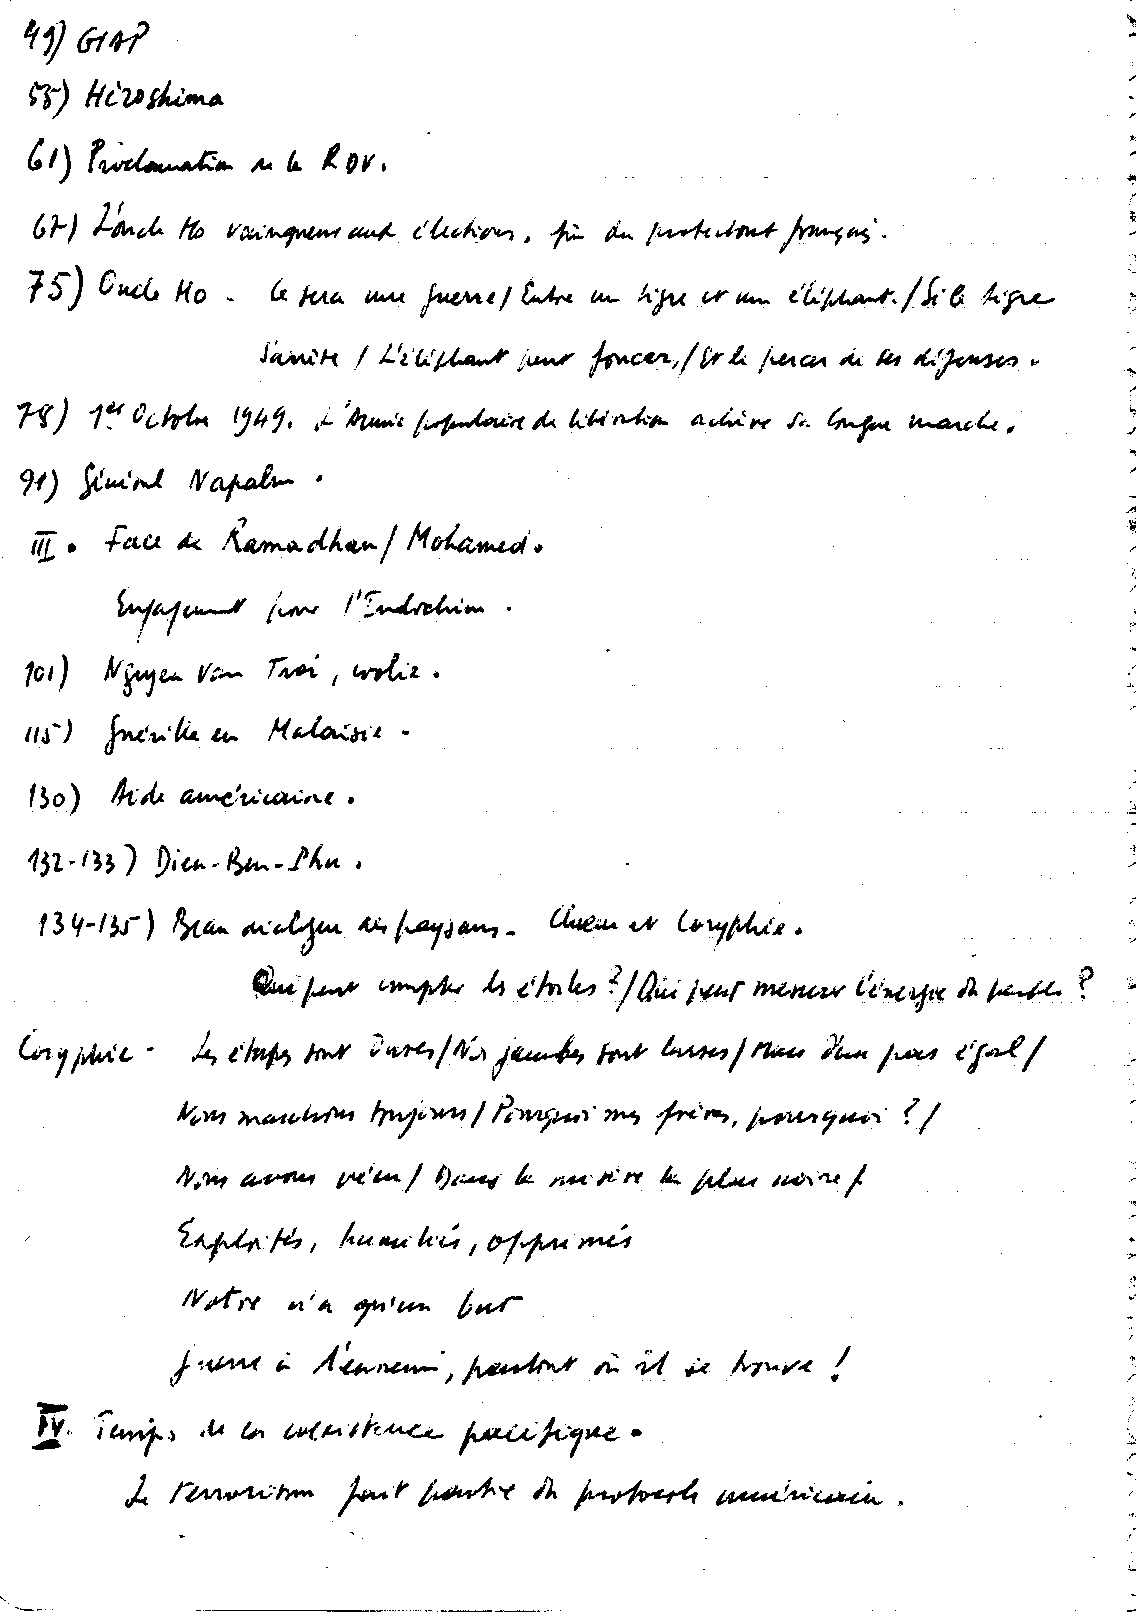 49) GIAP
55) Hiroshima
61) Proclamation de la RDV.
67) L'oncle Ho vainqueur aux élections, fin du protectorat français.
75) Oncle Ho - Ce sera une guerre / Entre un tigre et un éléphant. / Si le tigre
s'arrête / L'éléphant peut foncer, / Et le percer de ses défenses.
78) 1er Octobre 1949. L'Armée populaire de libération achève sa longue marche.
91) Général Napalm.
III. Face de Ramadhan / Mohamed.
Engagement pour l'Indochine.
101) Nguyen Van Troi,
115) Guérilla en Malaisie -
130) Aide américaine.
132-133) Dien-Ben-Phu.
134-135) Beau dialogue des paysans - Choeur et Coryphée.
Qui peut compter les étoiles ? / Qui peut mesurer l'énergie du peuple ?
Coryphée - Les étapes sont dures / Nos jambes sont lasses / Mais d'un pas égal /
Nous marchons toujours / Pourquoi mes frères, pourquoi ? /
Nous avons vécu / Dans la misère la plus noire /
Exploités, humiliés, opprimés
Notre n'a qu'un but
Guerre à l'ennemi, partout où il se trouve !
IV. Temps de la coexistence pacifique.
Le terrorisme fait partie du protocole américain.